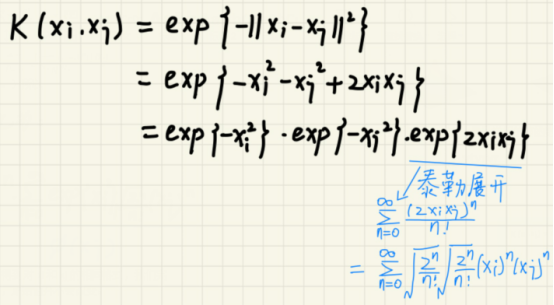 K(xi.xj) = exp{-||xi-xj||²}
= exp{-xi²-xj²+2xixj}
= exp{-xi²}·exp{-xj²}·exp{2xixj}
泰勒展开
∑n=0∞ (2xixj)ⁿ/n!
= ∑n=0∞ √(2ⁿ/n!) √(2ⁿ/n!) (xi)ⁿ(xj)ⁿ